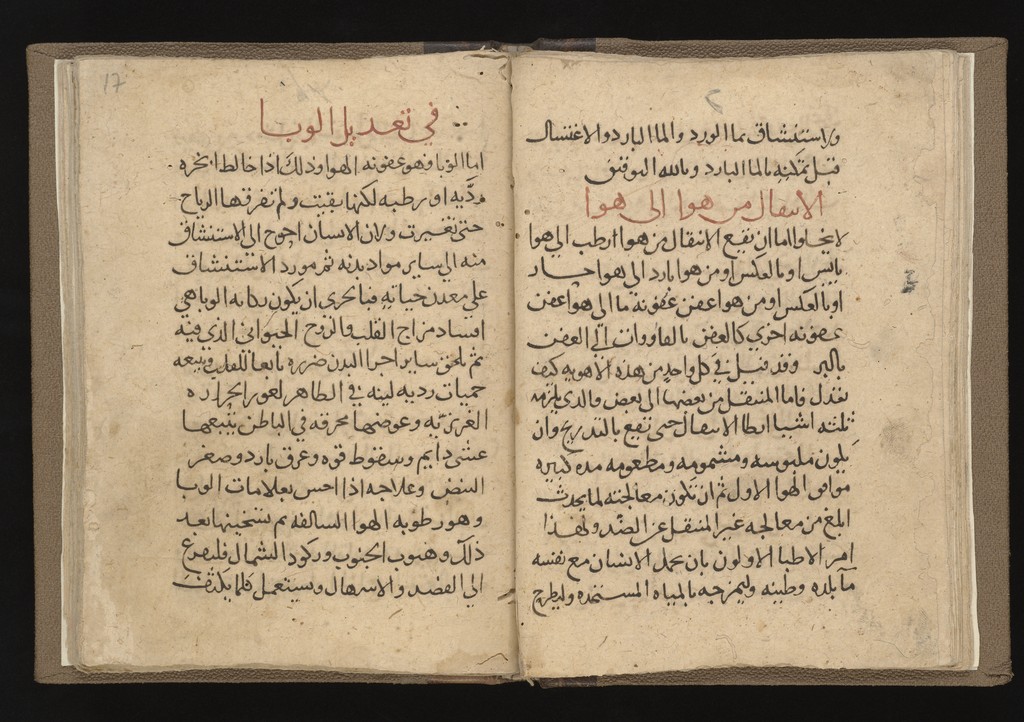 والاستنشاق بما الورد والما البارد والاغتسال
قبل تمكنه بالما البارد وبالله التوفيق
الانتقال من هوا الى هوا
لا يخلوا اما ان يقع الانتقال من هوا ارطب الى هوا
يابس او بالعكس او من هوا بارد الى هوا حار
او بالعكس او من هوا عفن عفونة ما الى هوا عفن
عفونه اخري كالعفن بالقاورات الي العفن
وقد قيل في كل واحد من هذه الاهويه كيف
تعدل فاما المنتقل من بعضها الى بعض فالذي يلزمه
ثلثه اشيا ابطا الانتقال حتى تقع بالتدريج وان
يكون ملبوسه ومشمومه ومطعومه مده كبيره
موافق الهوا الاول ثم ان تكون معالجته لما يحدث
ابلغ من معالجه غير المنتقل عن الضد ولهذا
امر الاطبا الاولون بان يحمل الانسان مع نفسه
ما بلده وطينه وليمزجه بالمياه المستجده وليطرح
17
في تعديل الوبا
اما الوبا فهو عفونه الهوا وذلك اذا خالط ابخره
رديه او رطبه لكنها بقيت ولم تفرقها الرياح
حتى تغيرت ولان الانسان احوج الى الاستنشاق
منه الى ساير مواد بدنه ثم مورد الاستنشاق
علي معدن حياته فبا يحري ان يكون الوبا هي
افساد مزاج القلب والروح الحيواني الذي فيه
ثم يلحق ساير اجزا البدن ضرره تابعا للقلب ويتبعه
حميات رديه لينه في الظاهر لغور الحراره
الغريزيه وعوضها محرقه في الباطن يتبعها
غشي دايم وسقوط قوه وعرق بارد وصغر
النبض وعلاجه اذا احس بعلامات الوبا
وهو رطوبه الهوا السالفه ثم تسخينها بعد
ذلك وهبوب الجنوب وركود الشمال فليفزع
الى الفصد والاسهال ويستعمل كلما يكثف